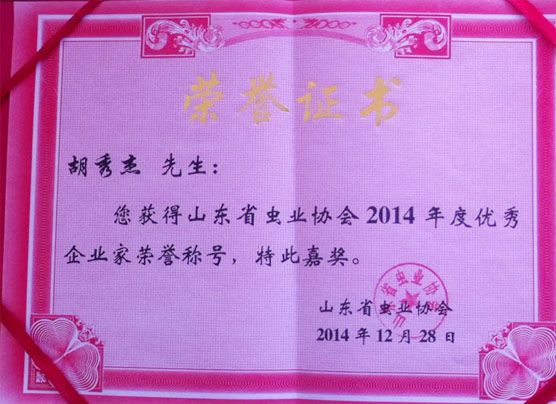 荣誉证书
胡秀杰 先生：
您获得山东省虫业协会2014年度优秀
企业家荣誉称号，特此嘉奖。
山东省虫业协会
2014年12月28日